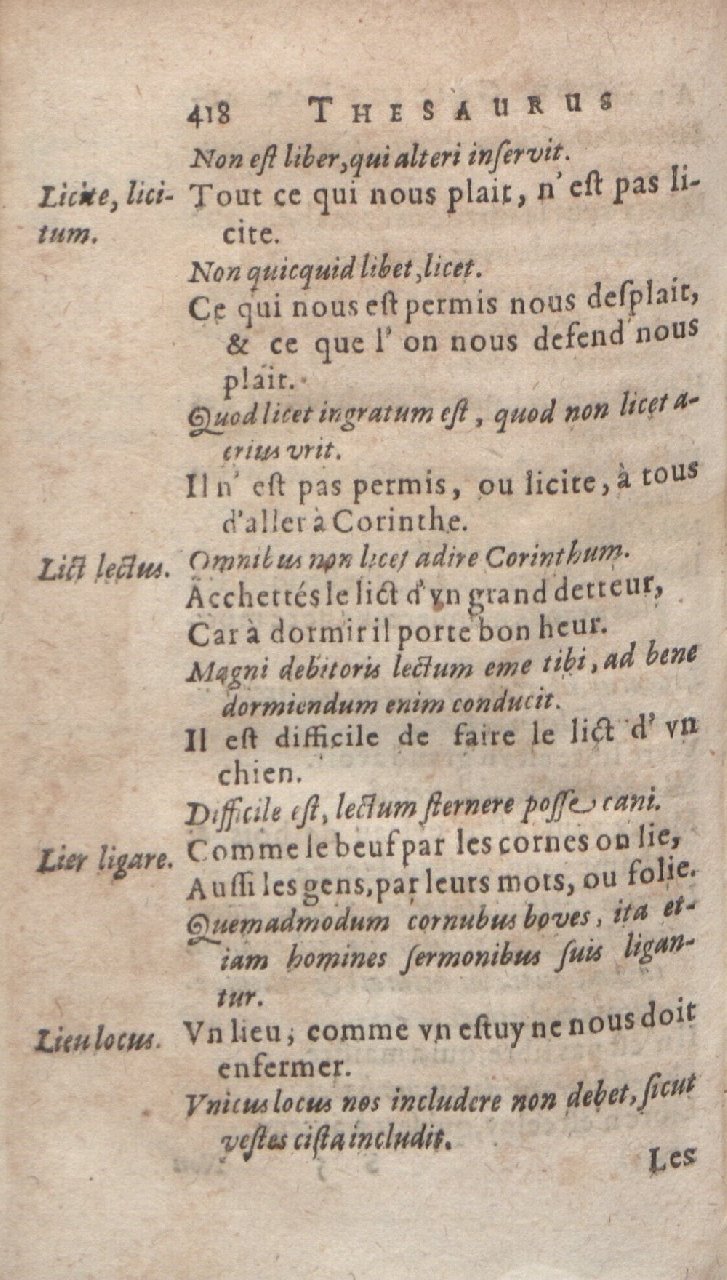 418 THESAURUS
Non eſt liber, qui alteri inſervit.
Licite, lici-
tum.
Tout ce qui nous plait, n'eſt pas li-
cite.
Non quicquid libet, licet.
Ce qui nous eſt permis nous deſplait,
& ce que l'on nous defend nous
plait.
Quod licet ingratum eſt, quod non licet a-
crius vrit.
Il n'eſt pas permis, ou licite, à tous
d'aller à Corinthe.
Omnibus non licet adire Corinthum.
Lict lectus.
Acchettés le lict d'vn grand detteur,
Car à dormir il porte bon heur.
Magni debitoris lectum eme tibi, ad bene
dormiendum enim conducit.
Il eſt difficile de faire le lict d'vn
chien.
Difficile eſt, lectum ſternere poſſe cani.
Lier ligare.
Comme le beuf par les cornes on lie,
Auſſi les gens, par leurs mots, ou folie.
Quemadmodum cornubus boves, ita et-
iam homines ſermonibus ſuis ligan-
tur.
Lieu locus.
Vn lieu, comme vn eſtuy ne nous doit
enfermer.
Vnicus locus nos includere non debet, ſicut
veſtes ciſta includit.
Les